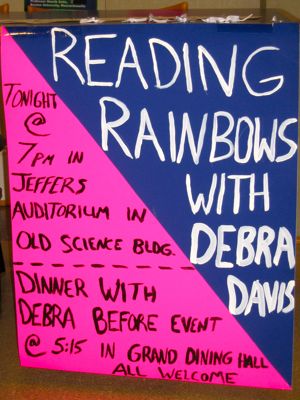 READING
RAINBOWS
WITH
DEBRA
DAVIS
TONIGHT
@
7PM IN
JEFFERS
AUDITORIUM IN
OLD SCIENCE BLDG.
DINNER WITH
DEBRA BEFORE EVENT
@ 5:15 IN GRAND DINING HALL
ALL WELCOME